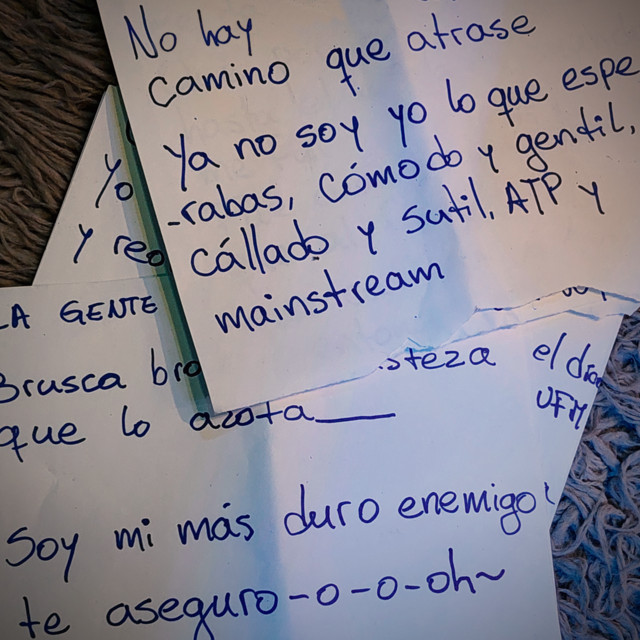 No hay
camino que atrase
Ya no soy yo lo que espe
-rabas, cómodo y gentil,
cállado y sutil. ATP y
mainstream
Yo
y reo
LA GENTE
Brusca bro
steza
que lo azota
el
UFM
Soy mi más duro enemigo!
te aseguro-o-o-oh~